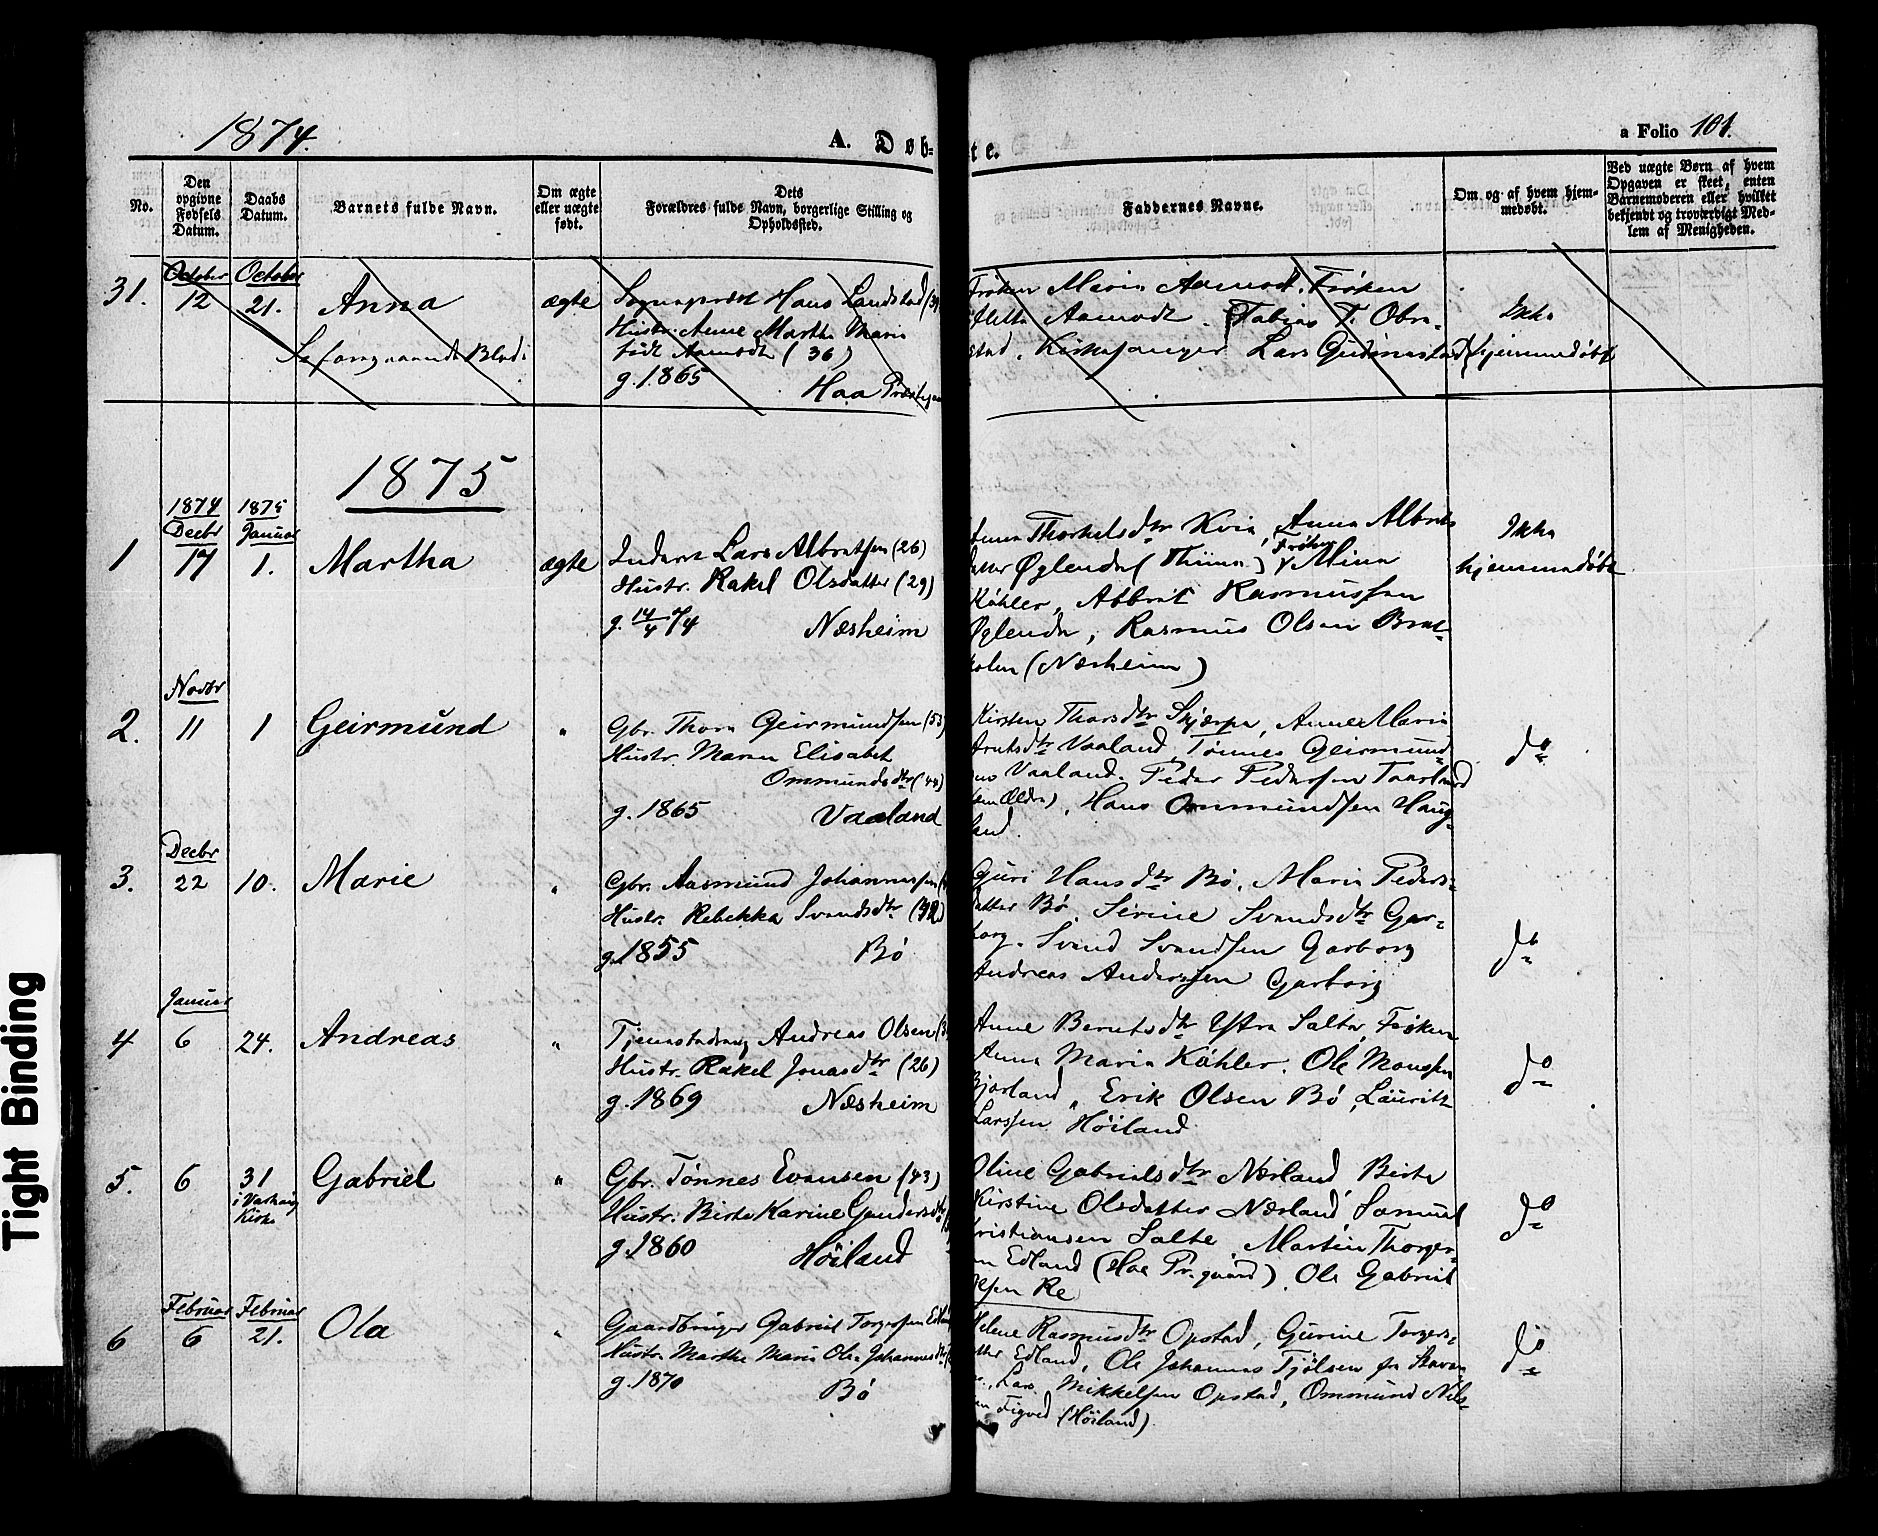 1874.
A. Døb-
te.
a Folio 101.
No.
Den opgivne Fødsels Datum.
Daabs Datum.
Barnets fulde Navn.
Om ægte eller uægte født.
Dets Forældres fulde Navn, borgerlige Stilling og Opholdssted.
Faddernes Navne.
Om og af hvem hjemmedøbt.
Ved uægte Børn af hvem Opgaven er skeet, enten Barnemoderen eller hvilket bekjendt og troværdigt Medlem af Menigheden.
31.
October
12
October
21.
Anna
Se foregaaende Blad
ægte
Sogneprest Hans Landstad
Hustr. Anne Marthe Marie
født Aamodt (36)
g. 1865
Haa
Frøken Marie Aamodt, Frøken
Aamodt. Tobias T. Obre-
stad, Kirkesanger Lars Gudmestad
Ikke
hjemmedøbt
1875
1
1874
Decbr
17
1875
Januar
1.
Martha
ægte
Inderst Lars Albretsen (26)
Hustr. Rakel Olsdatter (29)
g. 14/4 74
Næsheim
Thorkelsdtr Kvia, Anna Albrets
Øglende (Thime) Frøken Mina
Köhler, Abbrit Rasmussen
Øglende, Rasmus Olsen Brat-
(Næsheim)
Ikke
hjemmedøbt
2.
Novbr
11
1
Geirmund
"
Gbr. Thore Geirmundsen (53)
Hustr. Maren Elisabet
Ommundsdtr (44)
g. 1865
Vaaland
Kirsten Thorsdtr Skjærpe, Anne Marie
Vaaland, Tønnes Geirmund-
Vaaland. Peder Pedersen Taarland
Hans Ommundsen Haug-
land.
do
3.
Decbr
22
10.
Marie
"
Gbr. Aasmund Johannessen
Hustr. Rebekka Svendsdtr
g. 1855
Bø
Guri Hansdtr Bø, Marie Peders-
datter Bø, Serine Svendsdtr Gar-
borg. Svend Svendsen Garborg
Andreas Anderssen Garborg
do
4
Januar
6
24.
Andreas
"
Tjenestedreng Andreas Olsen
Hustr. Rakel Jonasdtr (26)
g. 1869
Næsheim
Anne Berntsdtr Ytre Salte, Frøken
Anna Maria Köhler. Ole Monsen
Bjorland, Erik Olsen Bø, Lauritz
Larssen Høiland
do
5.
6
31
i Varhaug
Kirke
Gabriel
"
Gbr. Tønnes Evensen (43)
Hustr. Birte Karine Gundersdtr
g. 1860
Høiland
Oline Gabrielsdtr Nærland Birte
Kirstine Olsdatter Nærland, Samuel
Kristiansen Salte, Martin Thorger-
Edland (Haa Pr.gaard). Ole Gabriel
Re
do
6
Februar
6
Februar
21.
Ola
"
Gaardbruger Gabriel Torgersen
Hustr. Marthe Marie Ole Johannesdtr
g. 1870
Bø
Helene Rasmusdtr Opstad, Gurine Torgers-
Edland, Ole Johannes Tjølsen fra Stavan
Lars Mikkelsen Opstad, Ommund Nils-
(Høiland).
do
Tight Binding